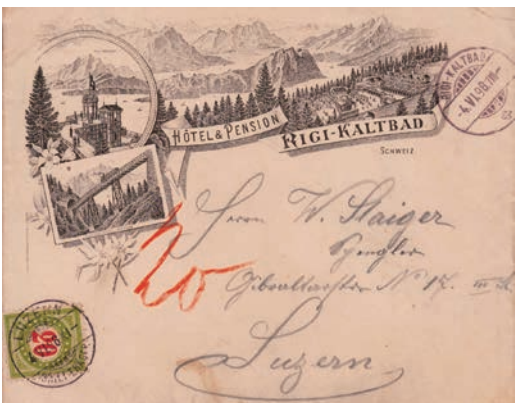 HÔTEL & PENSION
RIGI-KALTBAD
SCHWEIZ
RIGI-KALTBAD
-4.VI.98.
Herrn W. Staiger
Spengler
Gibraltarstr. Nº 17.
Luzern
20
20
LUZERN